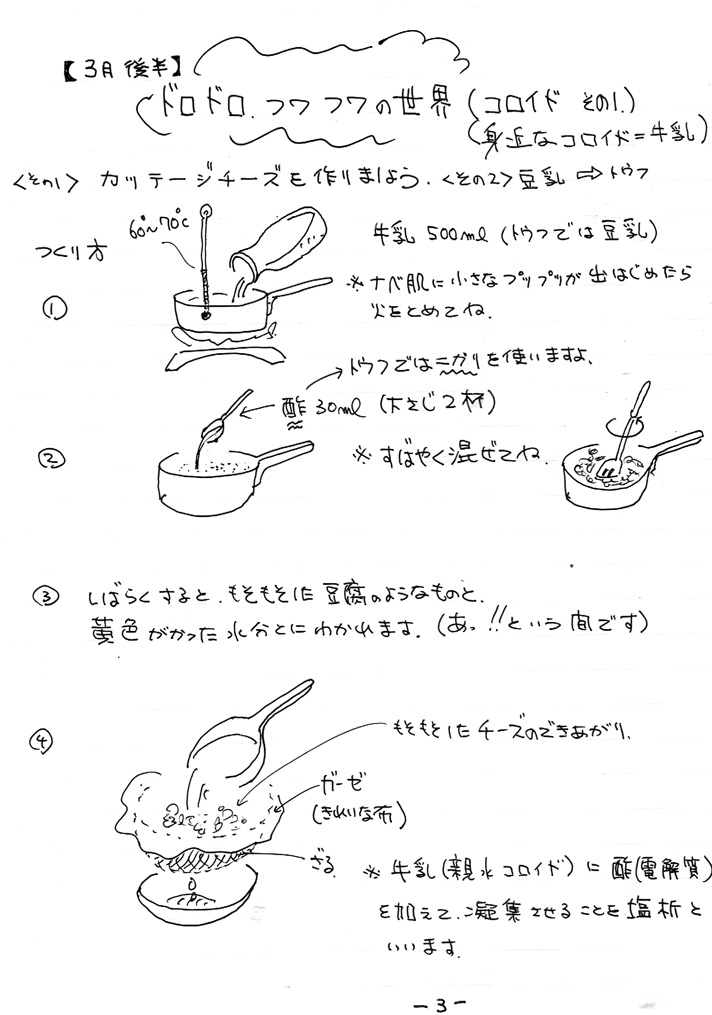 【3月 後半】
ドロドロ.フワフワの世界 (コロイド その1.)
(身近なコロイド=牛乳)
<その1> カッテージチーズを作りましょう. <その2> 豆乳 ⇨ トウフ
つくり方
60°~70℃
牛乳 500ml (トウフでは豆乳)
①
※ ナベ肌に小さなプップツが出はじめたら
火をとめてね.
トウフではニガリを使いますよ.
酢 30ml (大さじ2杯)
②
※ すばやく混ぜてね.
③ しばらくすると、もそもそした豆腐のようなものと、
黄色がかった水分とにわかれます. (あっ!!という間です)
④
もそもそしたチーズのできあがり.
ガーゼ
(きれいな布)
ざる
※ 牛乳(親水コロイド)に酢(電解質)
を加えて、凝集させることを塩析と
いいます.
-3-